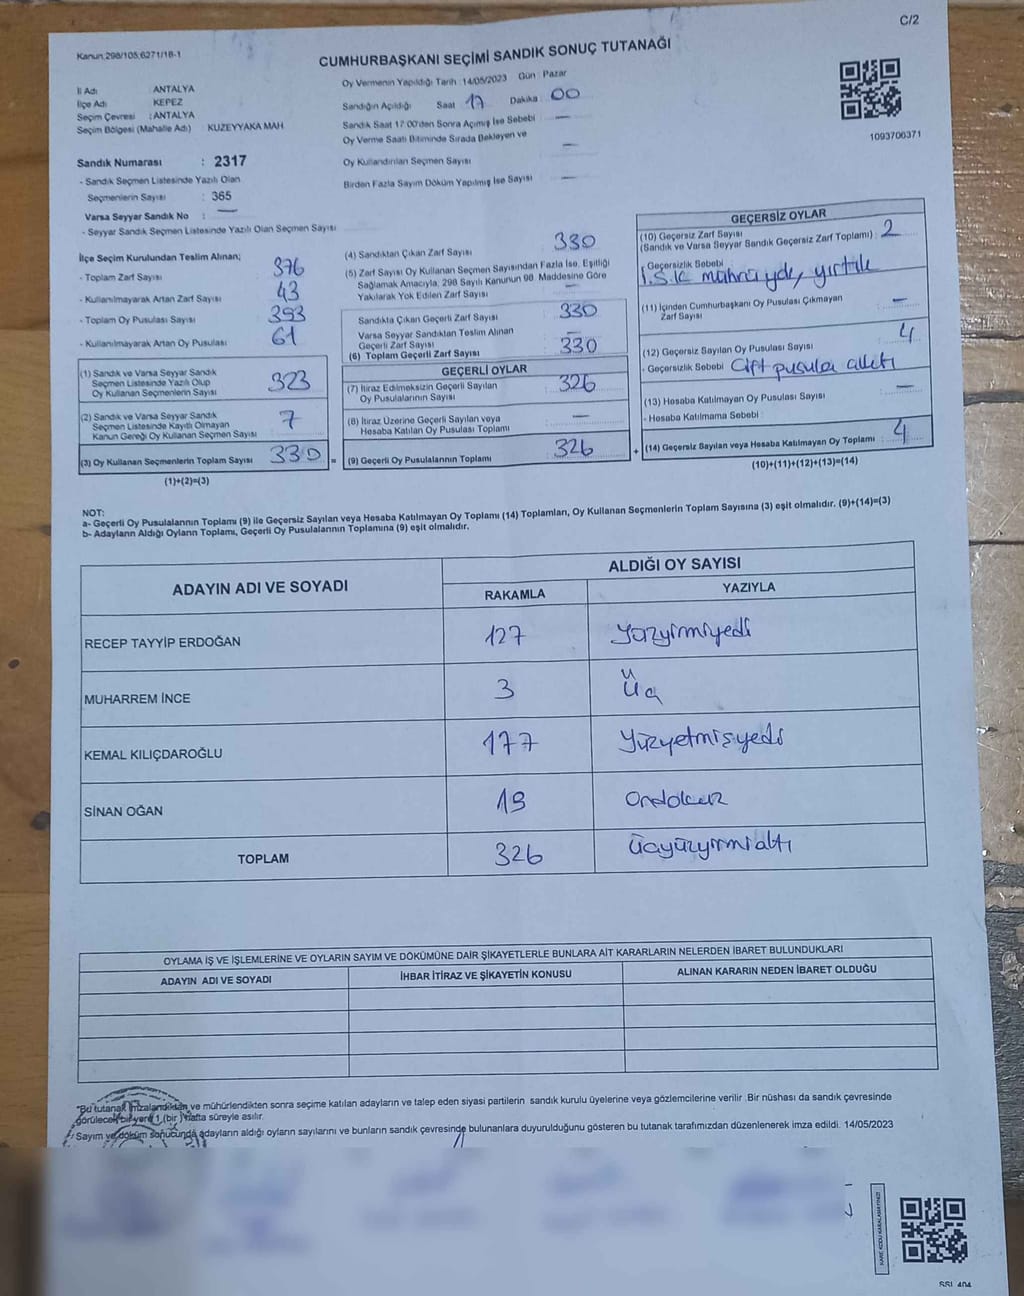 C/2
Kanun:298/105,6271/18-1
CUMHURBAŞKANI SEÇİMİ SANDIK SONUÇ TUTANAĞI
İl Adı : ANTALYA
İlçe Adı : KEPEZ
Seçim Çevresi : ANTALYA
Seçim Bölgesi (Mahalle Adı) : KUZEYYAKA MAH
Sandık Numarası : 2317
- Sandık Seçmen Listesinde Yazılı Olan
Seçmenlerin Sayısı : 365
Varsa Seyyar Sandık No : —
- Seyyar Sandık Seçmen Listesinde Yazılı Olan Seçmen Sayısı
Oy Vermenin Yapıldığı Tarih : 14/05/2023 Gün : Pazar
Sandığın Açıldığı Saat 17 Dakika 00
Sandık Saat 17:00'den Sonra Açılmış İse Sebebi —
Oy Verme Saati Bitiminde Sırada Bekleyen ve
Oy Kullandırılan Seçmen Sayısı —
Birden Fazla Sayım Döküm Yapılmış İse Sayısı —
1093706371
İlçe Seçim Kurulundan Teslim Alınan;
- Toplam Zarf Sayısı 376
- Kullanılmayarak Artan Zarf Sayısı 43
- Toplam Oy Pusulası Sayısı 393
- Kullanılmayarak Artan Oy Pusulası 61
(1) Sandık ve Varsa Seyyar Sandık
Seçmen Listesinde Yazılı Olup
Oy Kullanan Seçmenlerin Sayısı 323
(2) Sandık ve Varsa Seyyar Sandık
Seçmen Listesinde Kayıtlı Olmayan
Kanun Gereği Oy Kullanan Seçmen Sayısı 7
(3) Oy Kullanan Seçmenlerin Toplam Sayısı 330 =
(1)+(2)=(3)
(4) Sandıktan Çıkan Zarf Sayısı 330
(5) Zarf Sayısı Oy Kullanan Seçmen Sayısından Fazla İse, Eşitliği
Sağlamak Amacıyla, 298 Sayılı Kanunun 98. Maddesine Göre
Yakılarak Yok Edilen Zarf Sayısı —
Sandıkta Çıkan Geçerli Zarf Sayısı 330
Varsa Seyyar Sandıktan Teslim Alınan
Geçerli Zarf Sayısı —
(6) Toplam Geçerli Zarf Sayısı 330
GEÇERLİ OYLAR
(7) İtiraz Edilmeksizin Geçerli Sayılan
Oy Pusulalarının Sayısı 326
(8) İtiraz Üzerine Geçerli Sayılan veya
Hesaba Katılan Oy Pusulası Toplamı —
(9) Geçerli Oy Pusulalarının Toplamı 326 +
GEÇERSİZ OYLAR
(10) Geçersiz Zarf Sayısı
(Sandık ve Varsa Seyyar Sandık Geçersiz Zarf Toplamı) : 2
- Geçersizlik Sebebi
İ.S.K mührü yok, yırtık
(11) İçinden Cumhurbaşkanı Oy Pusulası Çıkmayan
Zarf Sayısı —
(12) Geçersiz Sayılan Oy Pusulası Sayısı 4
- Geçersizlik Sebebi Çift pusula
(13) Hesaba Katılmayan Oy Pusulası Sayısı —
- Hesaba Katılmama Sebebi
(14) Geçersiz Sayılan veya Hesaba Katılmayan Oy Toplamı 4
(10)+(11)+(12)+(13)=(14)
NOT:
a- Geçerli Oy Pusulalarının Toplamı (9) ile Geçersiz Sayılan veya Hesaba Katılmayan Oy Toplamı (14) Toplamları, Oy Kullanan Seçmenlerin Toplam Sayısına (3) eşit olmalıdır. (9)+(14)=(3)
b- Adayların Aldığı Oyların Toplamı, Geçerli Oy Pusulalarının Toplamına (9) eşit olmalıdır.
ADAYIN ADI VE SOYADI
ALDIĞI OY SAYISI
RAKAMLA YAZIYLA
RECEP TAYYİP ERDOĞAN 127 Yüzyirmiyedi
MUHARREM İNCE 3 Üç
KEMAL KILIÇDAROĞLU 177 Yüzyetmişyedi
SİNAN OĞAN 19 Ondokuz
TOPLAM 326 Üçyüzyirmialtı
OYLAMA İŞ VE İŞLEMLERİNE VE OYLARIN SAYIM VE DÖKÜMÜNE DAİR ŞİKAYETLERLE BUNLARA AİT KARARLARIN NELERDEN İBARET BULUNDUKLARI
ADAYIN ADI VE SOYADI İHBAR İTİRAZ VE ŞİKAYETİN KONUSU ALINAN KARARIN NEDEN İBARET OLDUĞU
*Bu tutanak imzalandıktan ve mühürlendikten sonra seçime katılan adayların ve talep eden siyasi partilerin sandık kurulu üyelerine veya gözlemcilerine verilir .Bir nüshası da sandık çevresinde
görülecek bir yere 1 (bir ) hafta süreyle asılır.
Sayım ve döküm sonucunda adayların aldığı oyların sayılarını ve bunların sandık çevresinde bulunanlara duyurulduğunu gösteren bu tutanak tarafımızdan düzenlenerek imza edildi. 14/05/2023
KARE KODU KARALAMAYINIZ!